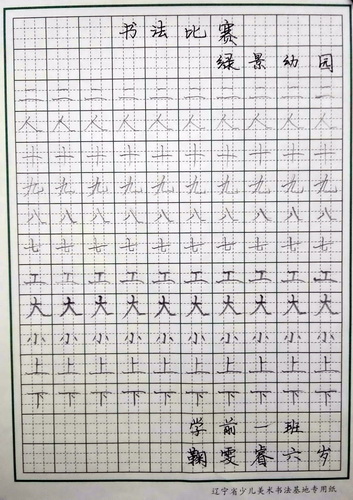 书法比赛
绿景幼园
二二二二二二二二二二
人人人人人人人人人人
九九九九九九九九九九
八八八八八八八八八八
七七七七七七七七七七
工工工工工工工工工工
大大大大大大大大大大
小小小小小小小小小小
上上上上上上上上上上
下下下下下下下下下下
学前一班
鞠雯睿六岁
辽宁省少儿美术书法基地专用纸